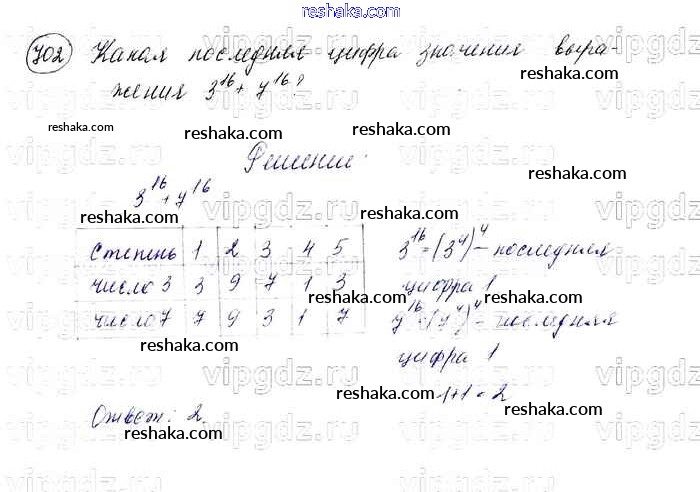 reshaka.com
702 Какая последняя цифра значения выра-
жения 3^16 + 7^16?
reshaka.com
reshaka.com
reshaka.com
reshaka.com
Решение:
reshaka.com
3^16 + 7^16
reshaka.com
reshaka.com
степень 1 2 3 4 5
число 3 3 9 7 1 3
число 7 7 9 3 1 7
3^16 = (3^4)^4 – последняя
цифра 1
7^16 = (7^4)^4 – последняя
цифра 1
1+1=2
reshaka.com
reshaka.com
reshaka.com
reshaka.com
reshaka.com
reshaka.com
Ответ: 2.
reshaka.com
reshaka.com
vipgdz.ru
vipgdz.ru
vipgdz.ru